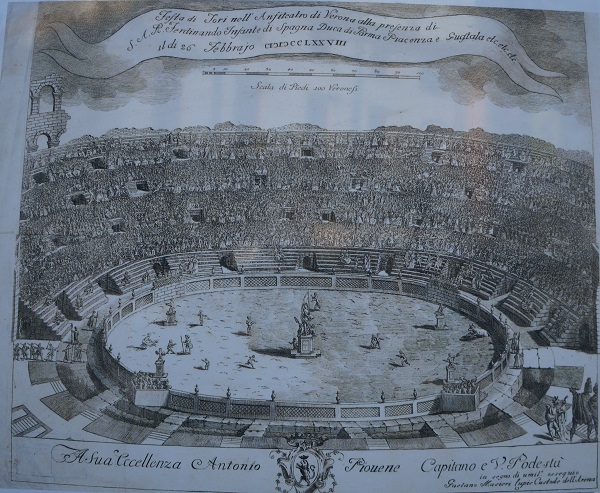 Festa di Tori nell' Anfiteatro di Verona alla presenza di
S. A. R. Ferdinando Infante di Spagna Duca di Parma Piacenza e Gustala etc. etc. etc.
il di 26 Febbrajo
Scala di Piedi 100 Veronesi
A Sua Eccellenza Antonio Piovene Capitano e V. Podestà
in segno di umil. ossequio
Gaetano
Custode dell'Arena